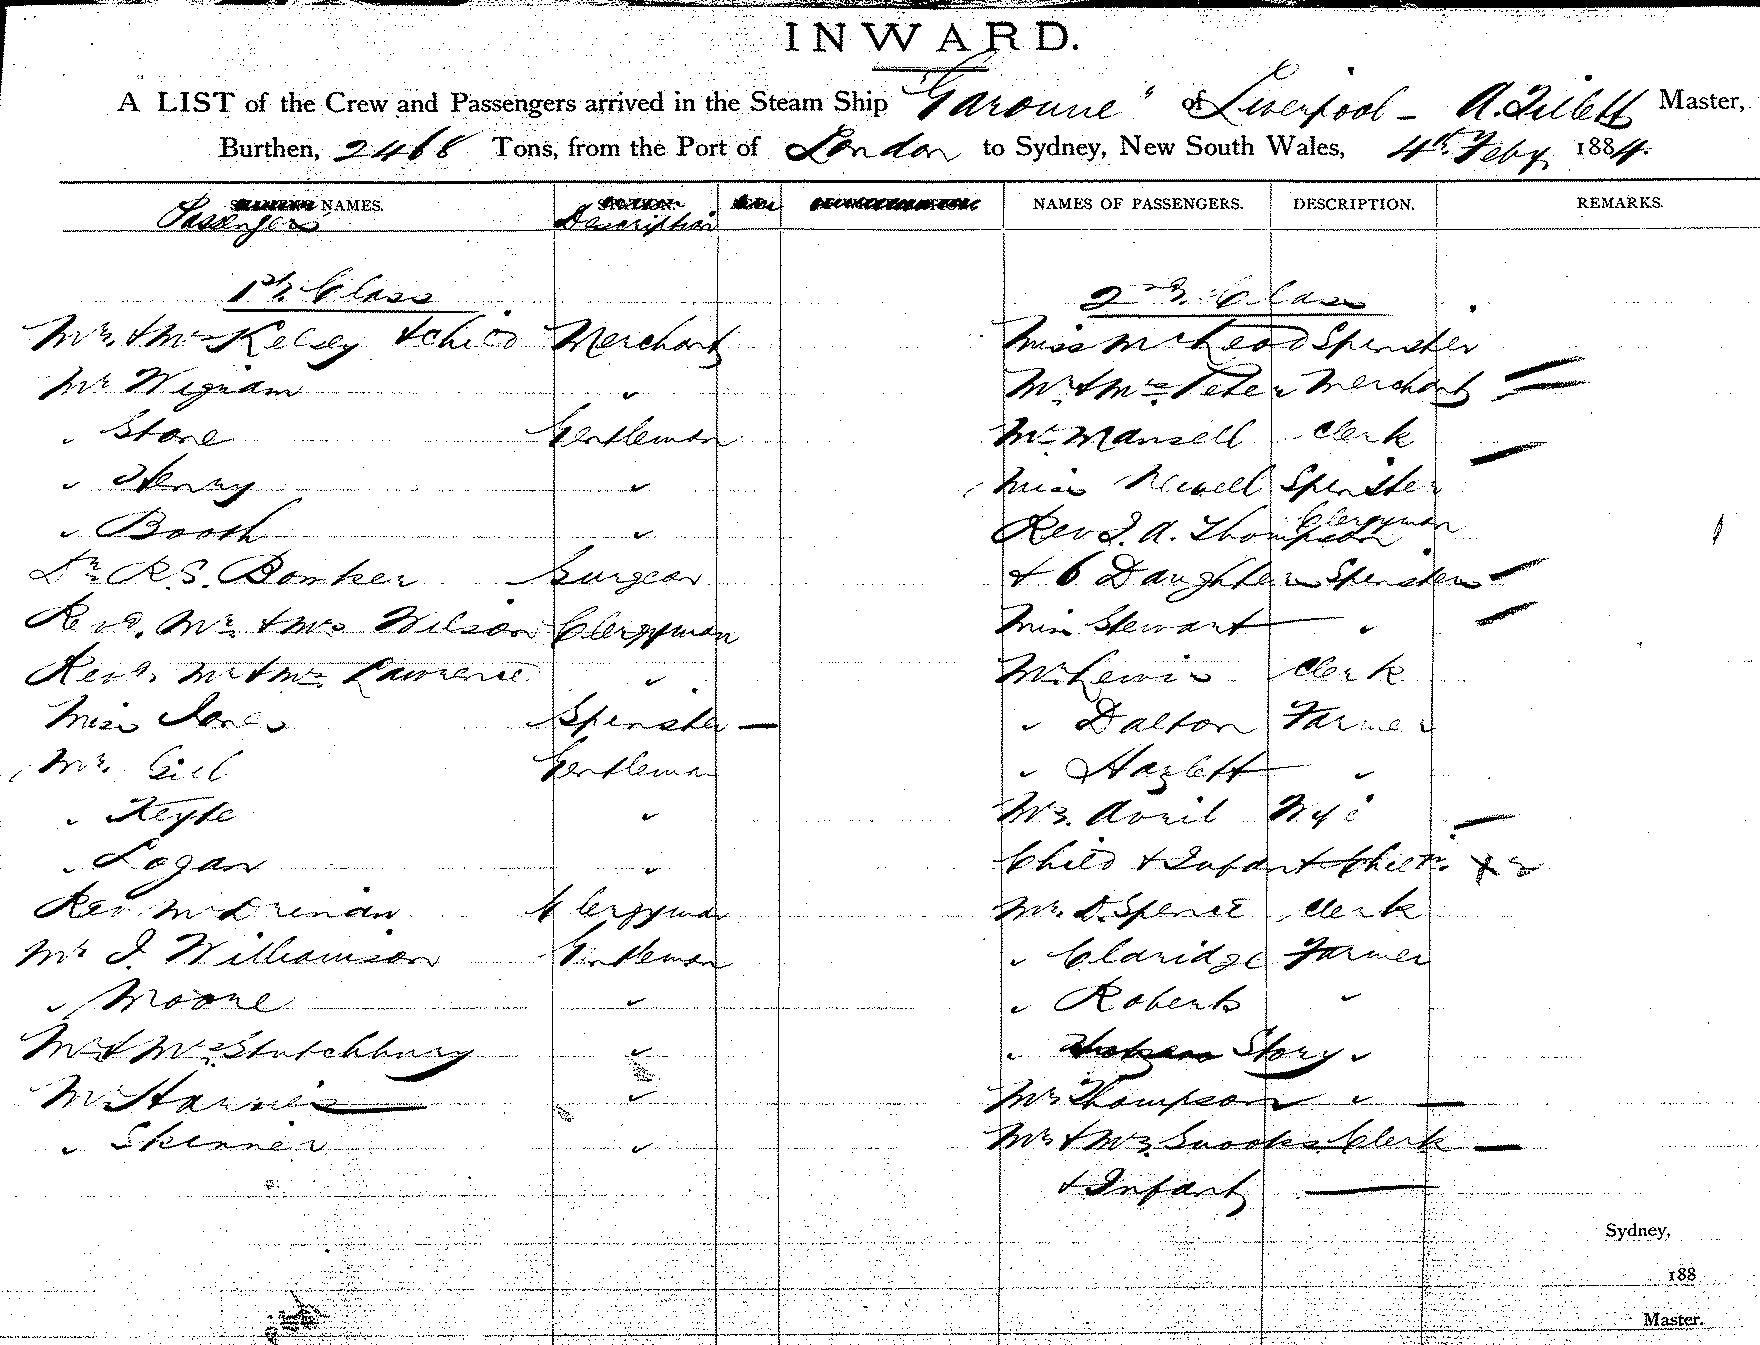 INWARD.
A LIST of the Crew and Passengers arrived in the Steam Ship "Garonne" of Liverpool - A. Gillett Master,
Burthen, 2468 Tons, from the Port of London to Sydney, New South Wales, 4th Feby 1884.
NAMES. NAMES OF PASSENGERS. DESCRIPTION. REMARKS.
Passengers Description
1st Class
Mr. & Mrs Kelsey & child Merchant
Mr Wigram "
" Stone Gentleman
" Henry "
" Booth "
Dr R.S. Bomker Surgeon
Revd. Mr. & Mrs Wilson Clergyman
Revd. Mr & Mrs Lawrence "
Miss Jones Spinster
Mr. Gill Gentleman
" Keyte "
" Logan "
Rev McDrinan Clergyman
Mr J. Williamson Gentleman
" Moore "
Mr & Mrs Stutchbury "
Mr Harris "
" Skinner "
2nd Class
Miss McLeod Spinster
Mr & Mrs Peter Merchant
Mr Mansell Clerk
Miss Newell Spinster
Rev J. A. Thompson Clergyman
& 6 Daughters Spinsters
Miss Stewart "
Mr Lewis Clerk
" Dalton Farmer
" Hazlett "
Mrs. Avril Wife
Child & Infant Chiln.
Mr. D. Spence Clerk
" Eldridge Farmer
" Roberts "
" Story "
Mr Thompson "
Mr & Mrs. Snooks Clerk
& Infant
Sydney,
188
Master.